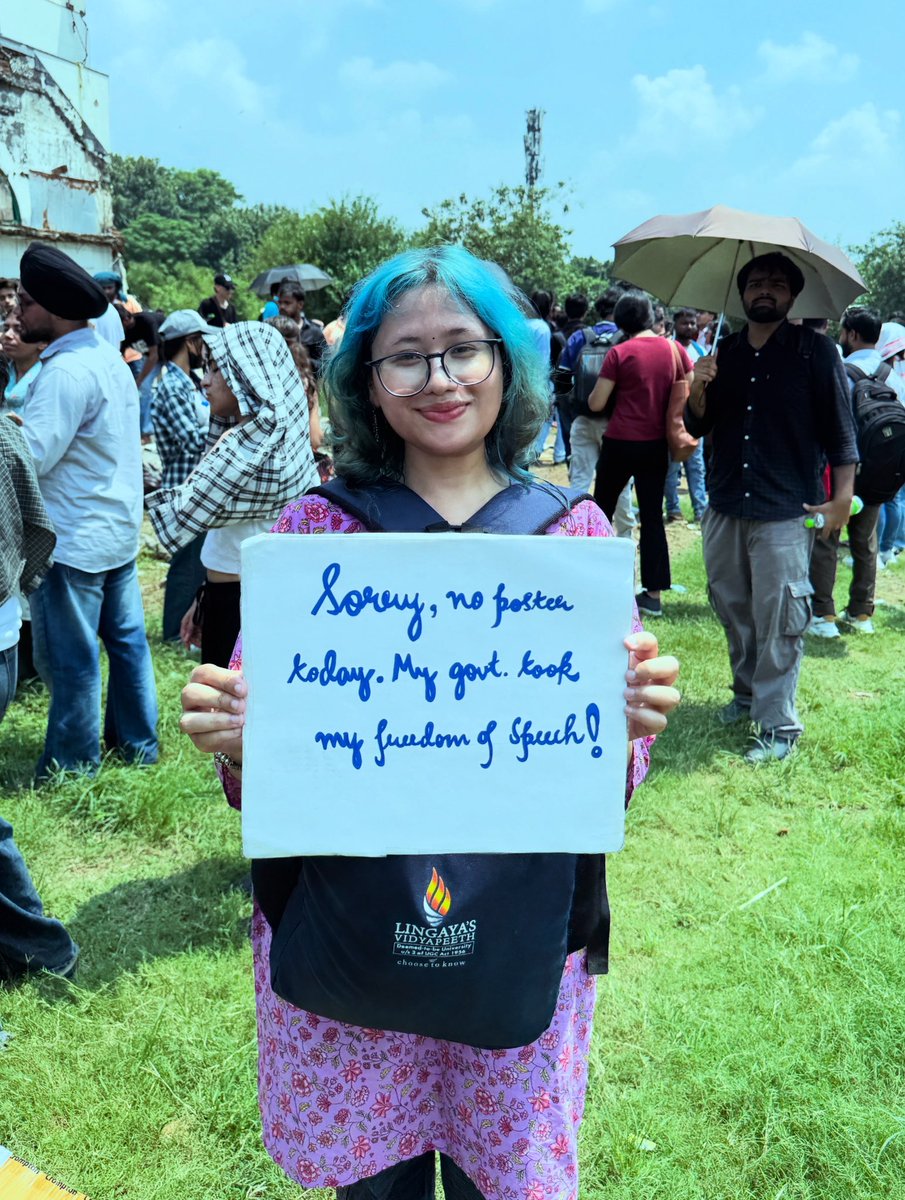 Sorry, no poster
today. My govt. took
my freedom of Speech!
LINGAYA'S
VIDYAPEETH
Deemed-to-be University
u/s 3 of UGC Act 1956
choose to know
Crompton Crompton